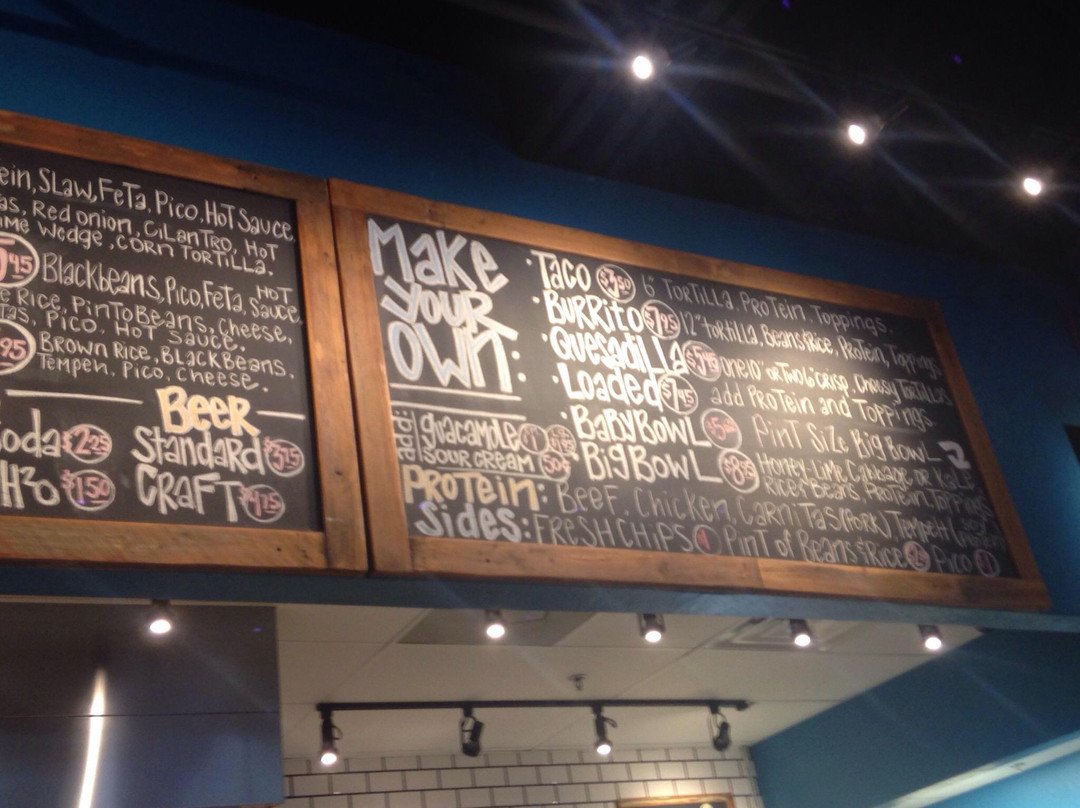 Slaw, Feta, Pico, Hot Sauce
Red onion, Cilantro, Hot
Wedge, corn tortilla.
Blackbeans, Pico, Feta, Hot Sauce
Rice, Pinto Beans, Cheese,
Pico, Hot Sauce.
Brown Rice, Black Beans,
Tempeh, Pico, Cheese.
Beer
$2.25 Standard $3.75
$1.50 Craft $4.25
Make
Your
Own:
Taco $3.50 6" Tortilla, Protein, Toppings.
Burrito $7.95 12" tortilla, Beans, Rice, Protein, Toppings
Quesadilla one 10" or Two 6" crisp, cheesy Tortillas
Loaded add Protein and Toppings
Baby Bowl Pint Size Big Bowl
Big Bowl Honey-Lime Cabbage or Kale
Rice & Beans, Protein, Toppings
add:
guacamole
sour cream 50¢
Protein: Beef, Chicken, Carnitas (Pork), Tempeh
Sides: Fresh Chips Pint of Beans & Rice Pico